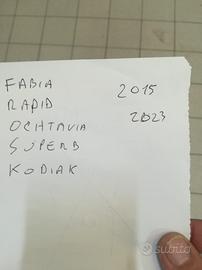 FABIA 2015
RAPID 2023
OCHTAVIA
SUPERB
KODIAK
subito